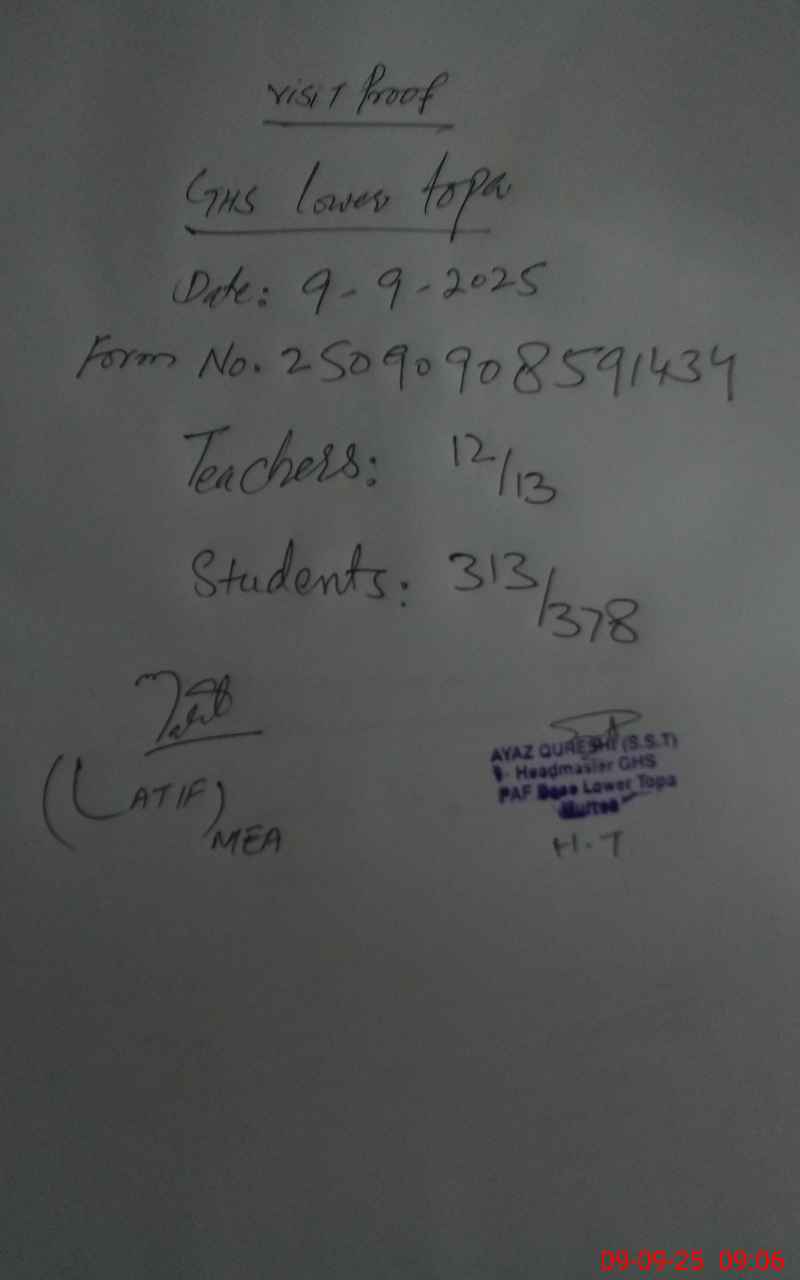 Visit Proof
GHS lower topa
Date: 9-9-2025
Form No. 25090908591434
Teachers: 12/13
Students: 313/378
(LATIF)
MEA
AYAZ QURESHI (S.S.T)
Headmaster GHS
PAF Base Lower Topa
Murree
H.T
09-09-25 09:06